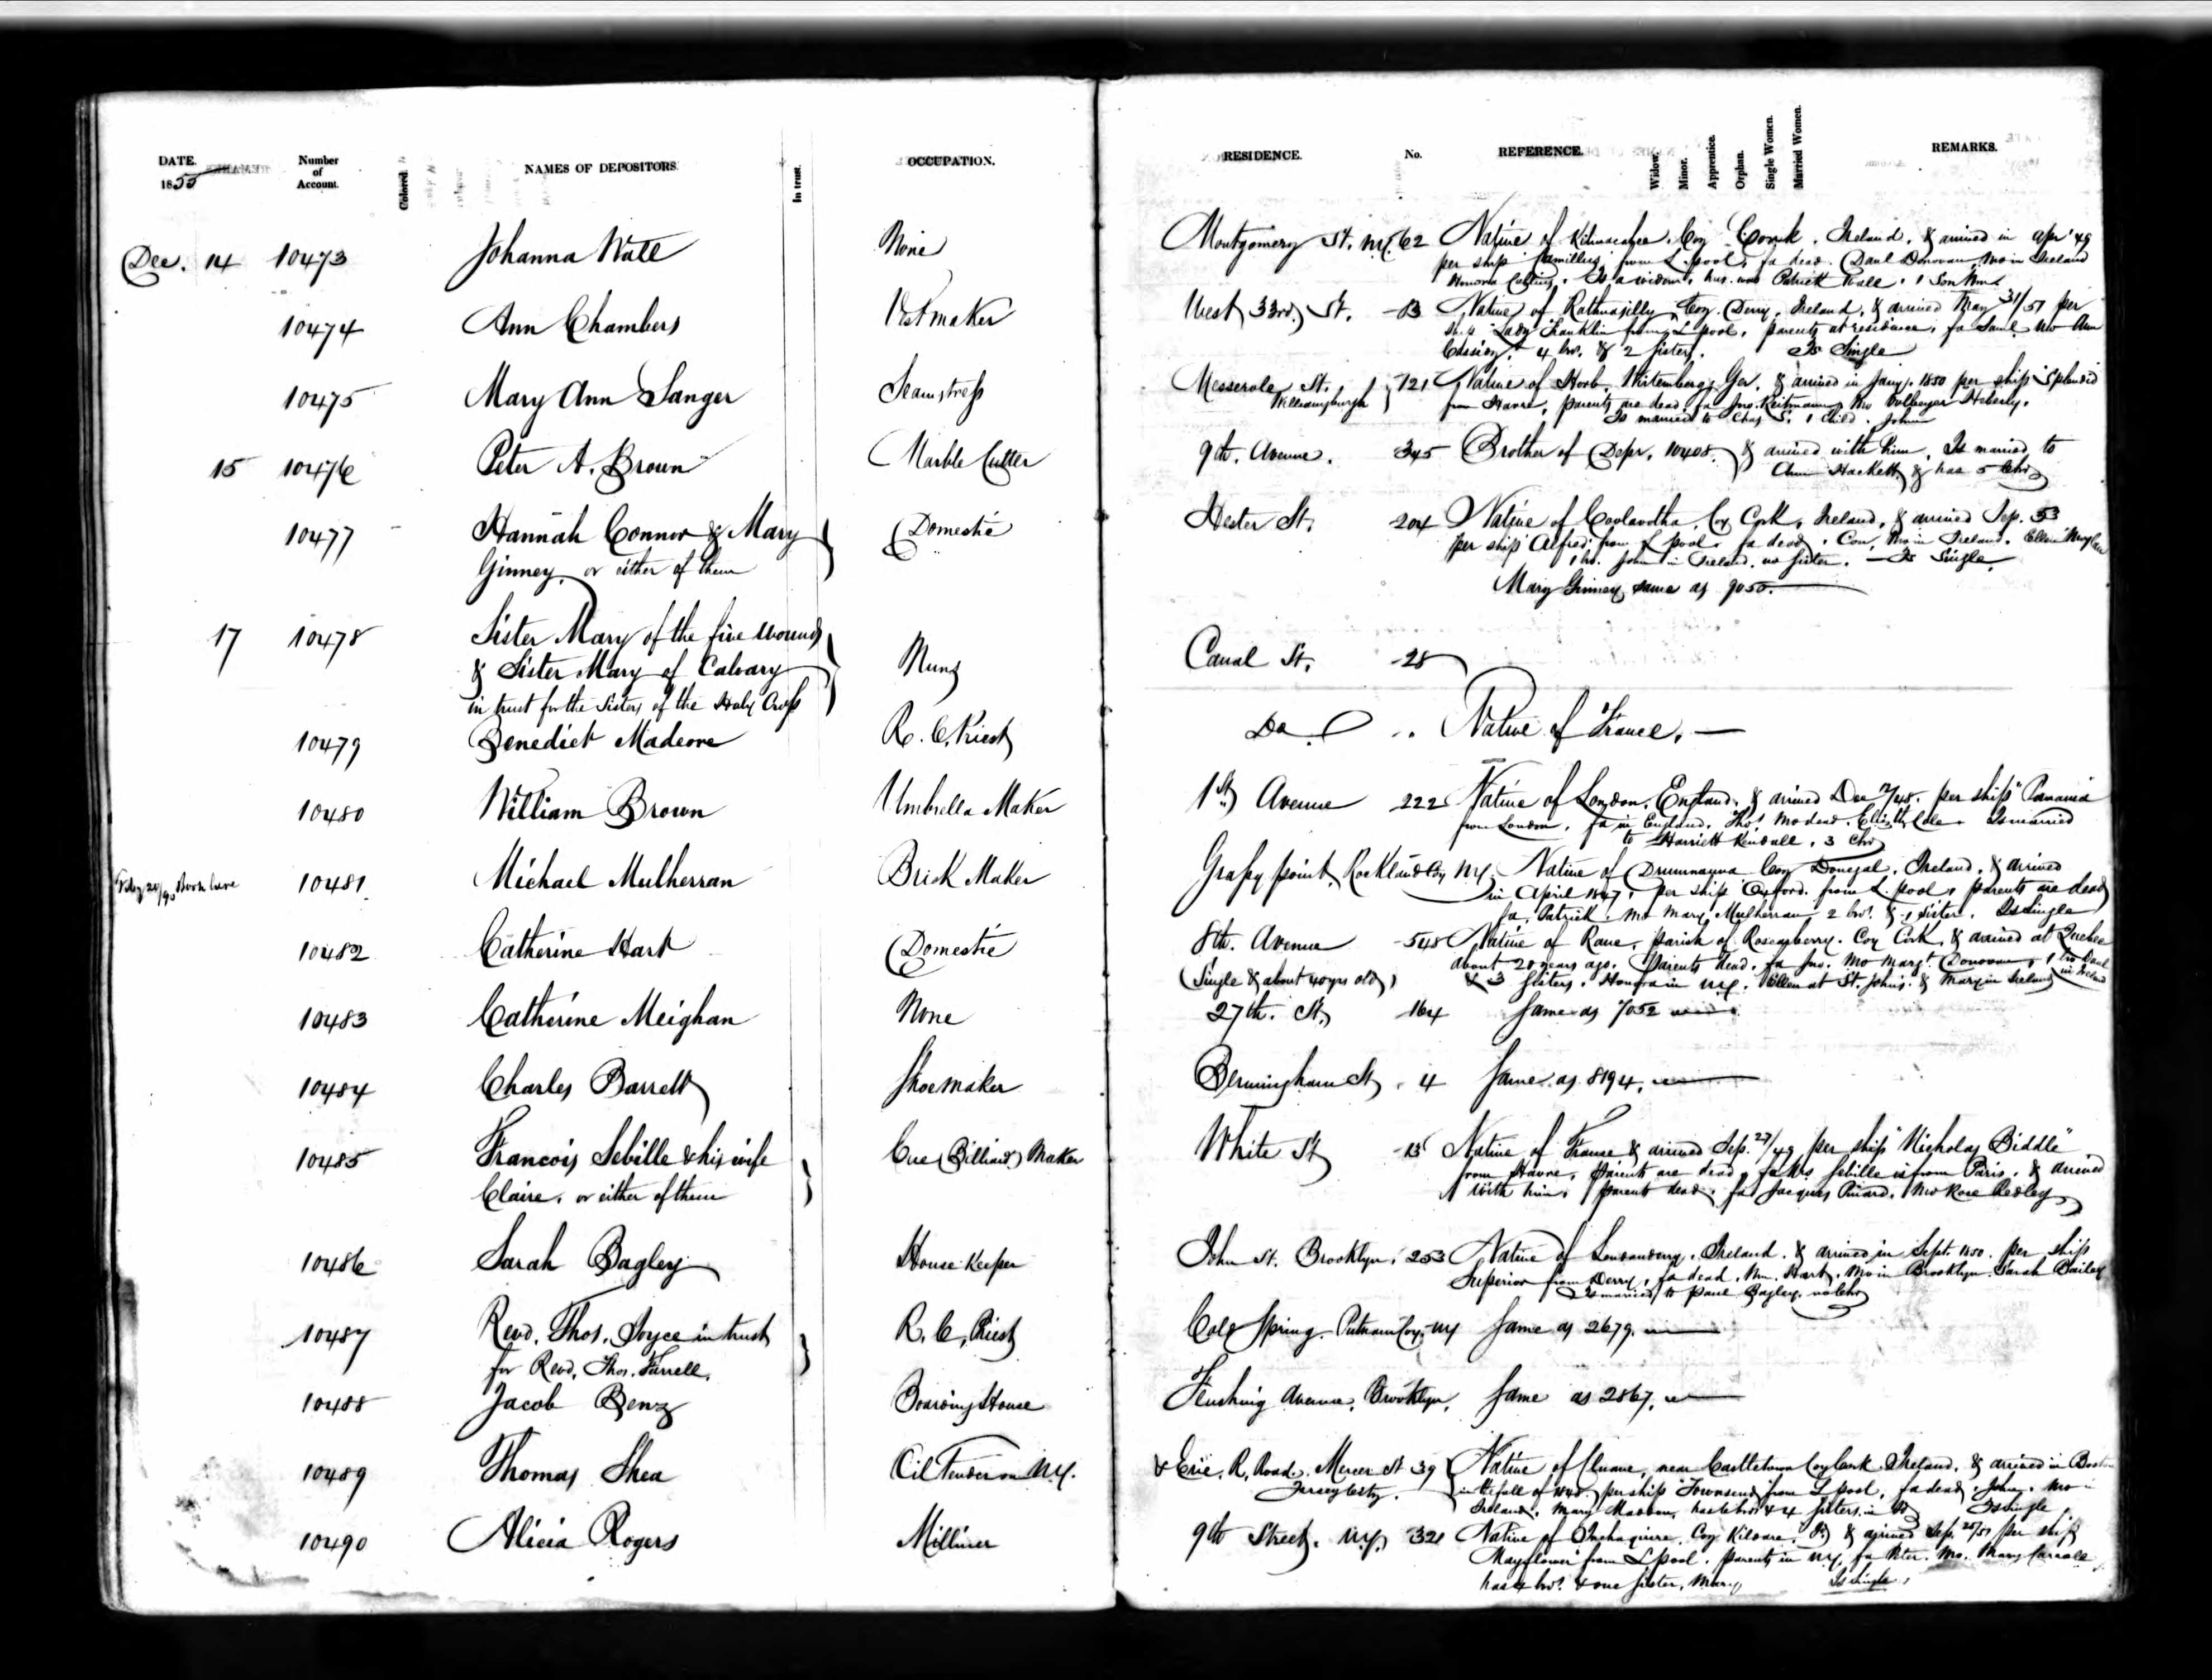 DATE. 1855
Number of Account.
Colored.
NAMES OF DEPOSITORS.
In trust.
OCCUPATION.
RESIDENCE.
No.
REFERENCE.
Widow.
Minor.
Apprentice.
Orphan.
Single Women.
Married Women.
REMARKS.
Dec. 14 10473 Johanna Wall None Montgomery St. N.Y. 62 Native of Coy Cork, Ireland, & arrived in Apr '49
per ship from L.pool, fa dead. Danl Donovan, Mo in Ireland
Honora Collins. Is a widow, hus. was Patrick Wall. 1 Son Wm
10474 Ann Chambers Vestmaker West 33rd. St. 13 Native of Coy. Derry, Ireland, & arrived May 31/51 per
ship Lady Franklin from L.pool, parents at residence, fa Saml Mo Ann
4 bro. & 2 sisters. Is Single
10475 Mary Ann Sanger Seamstress Messerole St. 121 Native of Horb, Wirtemberg, Ger. & arrived in Jany. 1850 per ship "Splendid"
Williamsburgh from Havre, parents are dead, fa Jno. Mo
Is married to Chas S. 1 Child. John
15 10476 Peter A. Brown Marble Cutter 9th. Avenue. 345 Brother of Depr. 10408. & arrived with him, Is married to
Ann Hackett & has 5 Chn
10477 Hannah Connor & Mary Domestic Hester St. 204 Native of Co Cork, Ireland, & arrived Sep. 53
Ginney, or either of them per ship Alfred from L.pool. fa dead, Con, Mo in Ireland, Ellen
1 bro. John in Ireland, no sister. — Is Single.
Mary Ginney same as 9050.
17 10478 Sister Mary of the five wounds Nuns Canal St. 28
& Sister Mary of Calvary
in trust for the Sisters of the Holy Cross
10479 Benedict Madeore R. C. Priest Do " Native of France. —
10480 William Brown Umbrella Maker 1st Avenue 222 Native of London, England, & arrived Dec 12/48. per ship
from London, fa in England, Thos. Mo dead, Elizth Cole. Is married
to Harriett Kendall. 3 Chn
Feby 20/90 Book here 10481. Michael Mulherran Brick Maker Grassy point, Rockland Coy N.Y. Native of Coy Donegal, Ireland, & arrived
in April 1847, per ship Oxford. from L.pool, parents are dead
fa. Patrick. Mo Mary Mulherran 2 bro. & 1 sister. Is Single
10482 Catherine Hart Domestic 8th. Avenue 548 Native of Rane, parish of Coy Cork, & arrived at Quebec
about 20 years ago. Parents dead. fa Jno. Mo Margt. Donovan, 1 bro
(Single & about 40 yrs old) & 3 sisters. Honora in N.Y. Ellen at St. Johns & Mary in Ireland
10483 Catherine Meighan None 27th. St. 164 Same as 7052
10484 Charles Barrett Shoemaker Birmingham St. 4 Same as 8194.
10485 Francois Sebille & his wife Cue (Billiard) Maker White St 13 Native of France & arrived Sep. 27/49 per ship "Nicholas Biddle"
Claire, or either of them from Havre, Parents are dead, Mrs Sebille is from Paris. & arrived
with him, parents dead, fa Jacques Mo Rose
10486 Sarah Bagley House Keeper John St. Brooklyn. 253 Native of Londonderry, Ireland. & arrived in Sept. 1850. per ship
Superior from Derry, fa dead, Wm. Hart, Mo in Brooklyn. Sarah Bailey
Is married to Paul Bagley. no Chn
10487 Revd. Thos. Joyce in trust R. C. Priest Cold Spring. Putnam Coy. N.Y Same as 2679.
for Revd. Thos. Farrell.
10488 Jacob Benz Boarding House Flushing Avenue, Brooklyn. Same as 2867.
10489 Thomas Shea Oil Tender on N.Y. & Erie. R. Road. Mercer St 39 Native of near Castletown Coy Cork Ireland. & arrived in Boston
Jersey City. in the fall of 1848. per ship Townsend from L.pool, fa dead, John, Mo in
Ireland, Mary has bro & 4 sisters in Is single
10490 Alicia Rogers Milliner 9th Street. N.Y. 321 Native of Coy Kildare, & arrived Sep. per ship
Mayflower from L.pool. parents in N.Y. fa Peter. Mo. Mary Carroll
has 4 bro. & one sister, Mary, Is single.